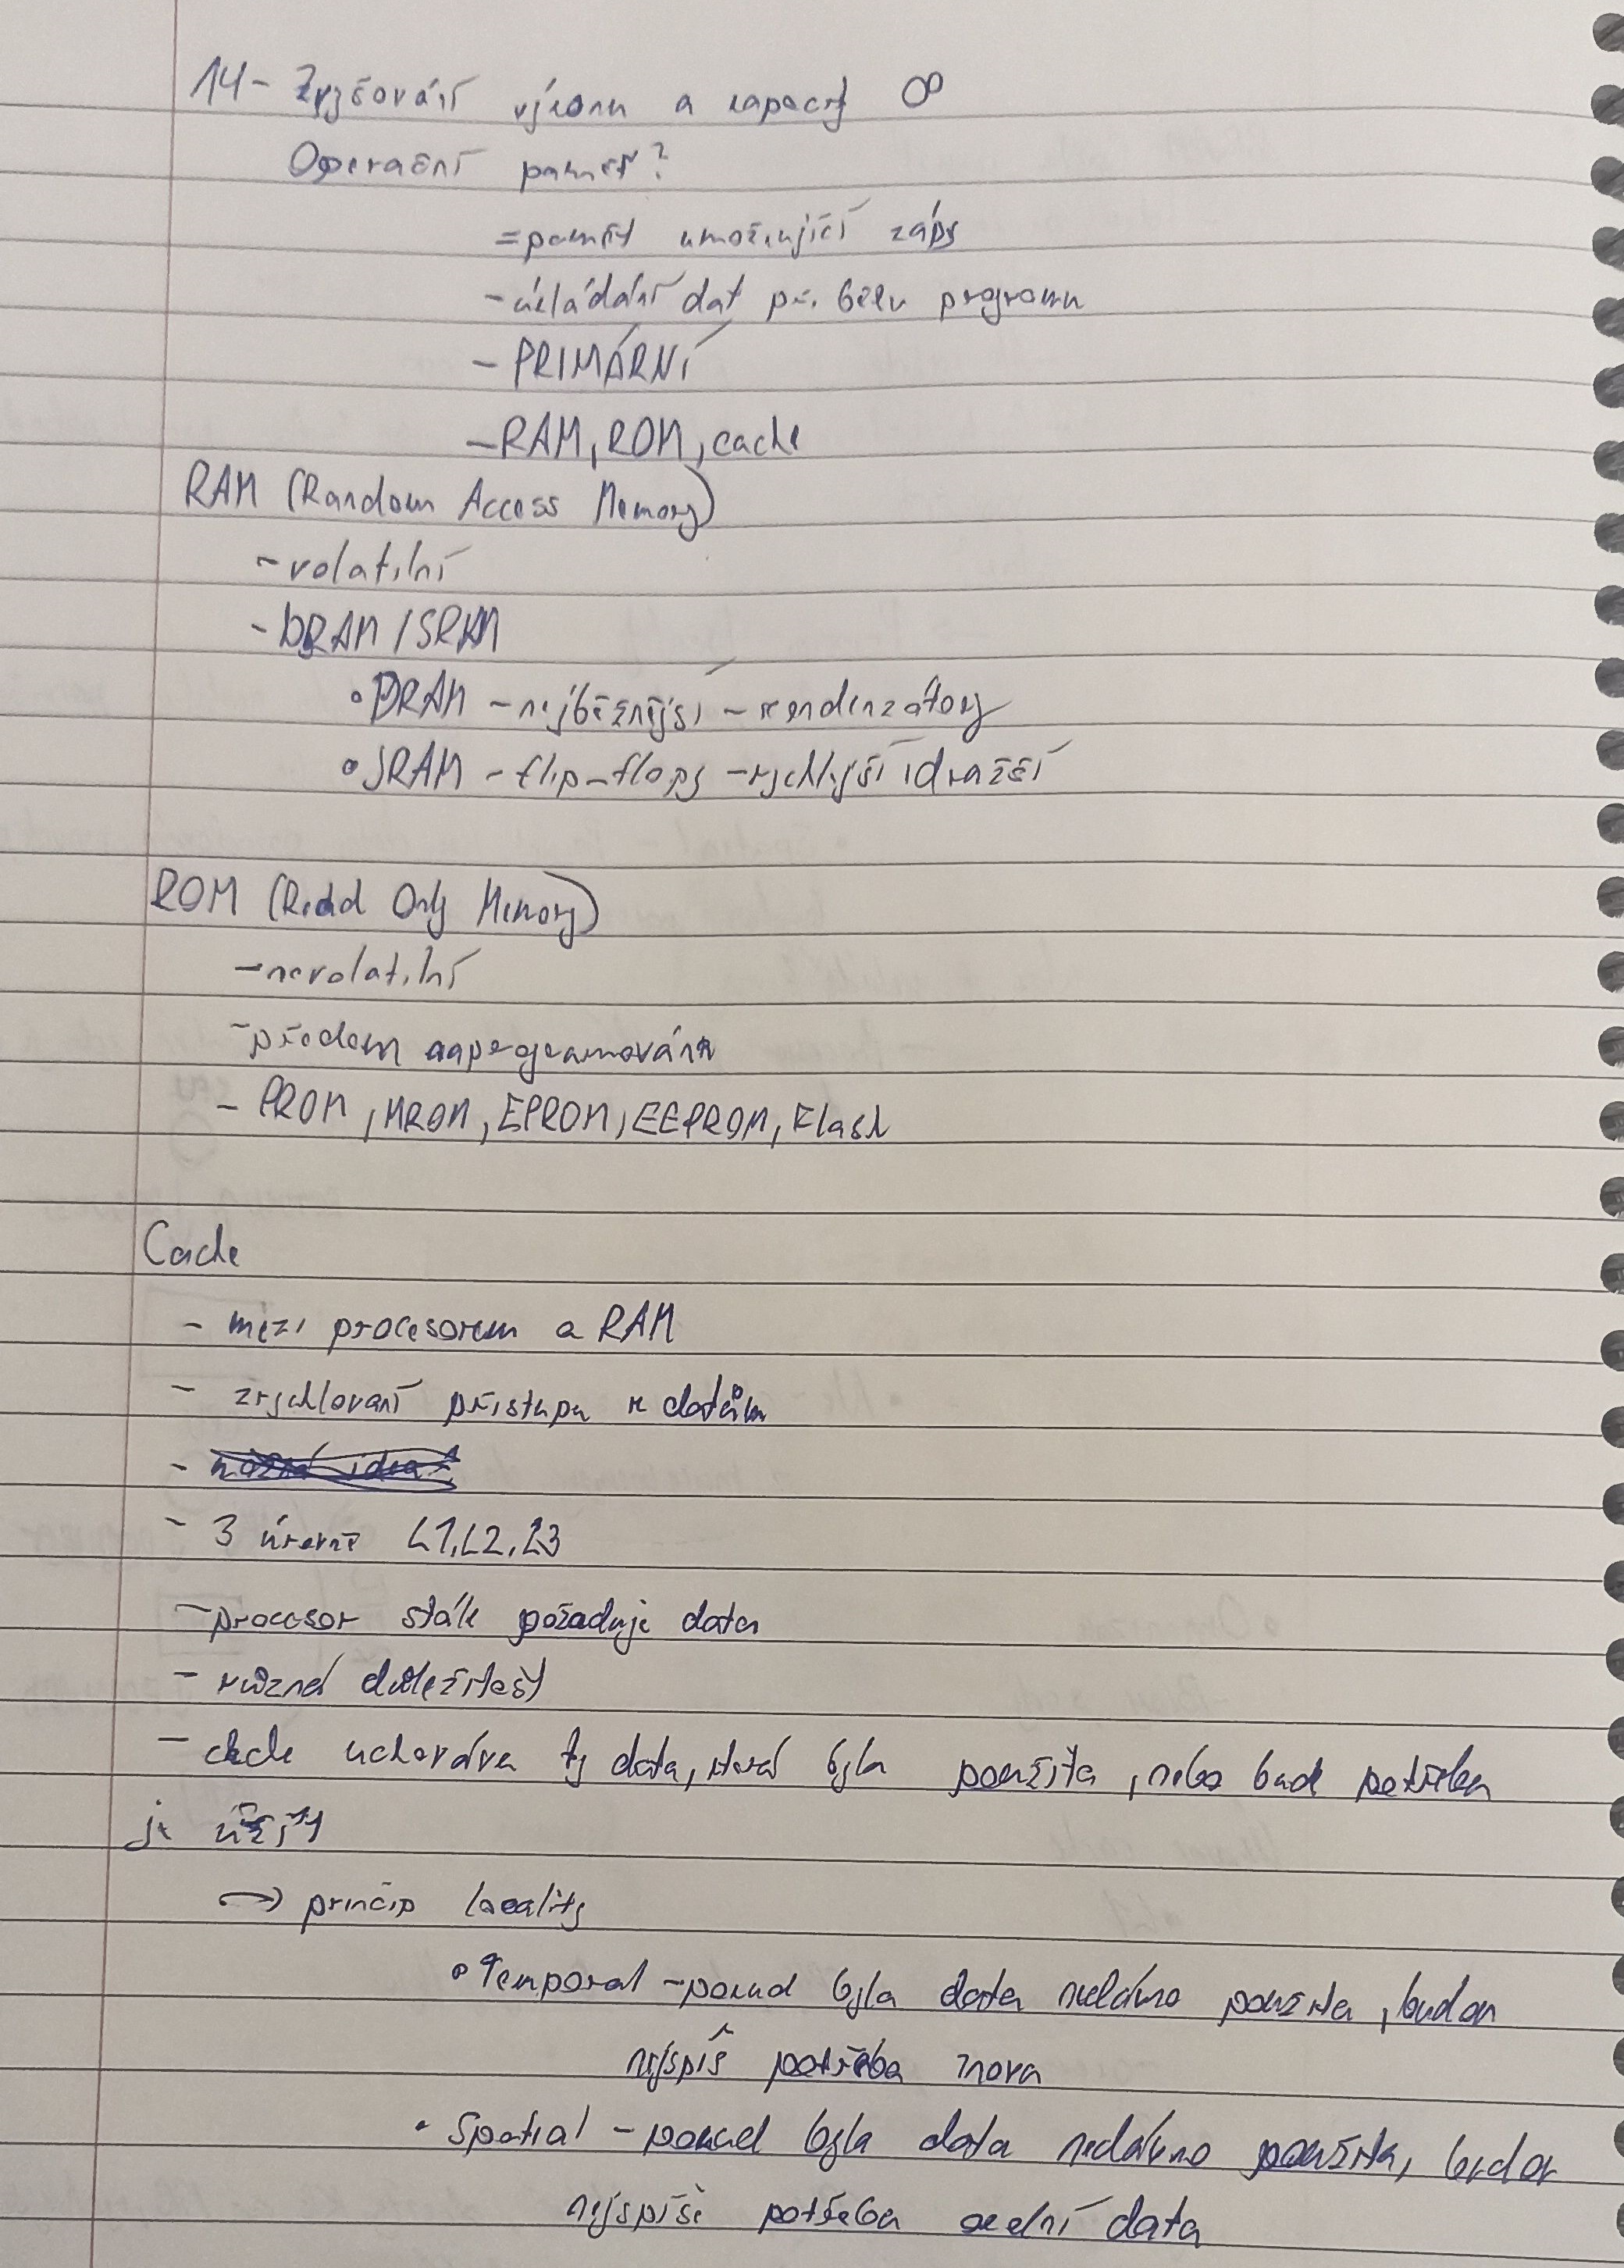 14 - Zvyšování výkonu a kapacity OP
Operační paměť?
= paměť umožňující zápis
- ukládání dat při běhu programu
- PRIMÁRNÍ
- RAM, ROM, cache
RAM (Random Access Memory)
- volatilní
- DRAM / SRAM
• DRAM - nejběžnější - kondenzátory
• SRAM - flip-flops - rychlejší i dražší
ROM (Read Only Memory)
- nevolatilní
- předem naprogramována
- PROM, MROM, EPROM, EEPROM, Flash
Cache
- mezi procesorem a RAM
- zrychlovaní přístupu k datům
-
- 3 úrovně L1, L2, L3
- procesor stále požaduje data
- různá důležitost
- cache uchovává ty data, která byla použita, nebo bude potřeba
je užít
→ princip locality
• Temporal - pokud byla data nedávno použita, budou
nejspíš potřeba znova
• Spatial - pokud byla data nedávno použita, budou
nejspíše potřeba data